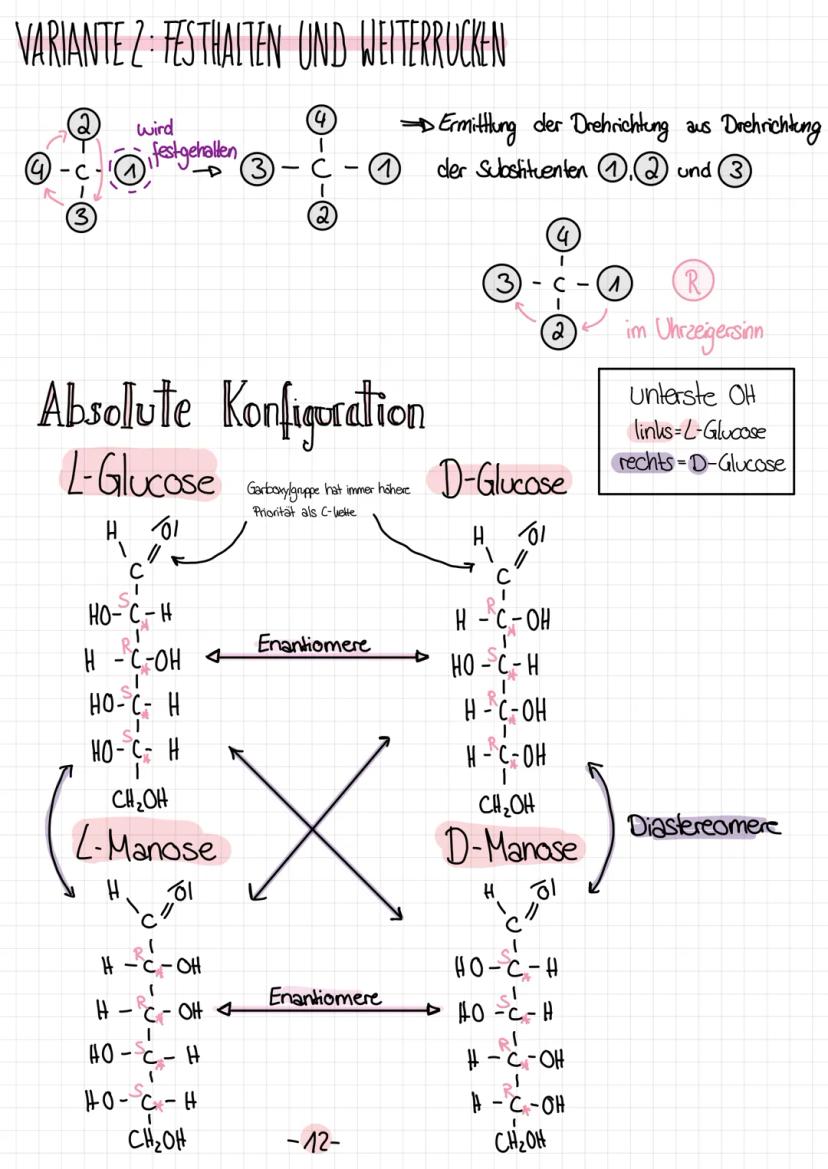 VARIANTE 2: FESTHALTEN UND WEITERRÜCKEN
2
4 - C - 1
3
wird
festgehalten
4
3 - C - 1
2
⇒ Ermittlung der Drehrichtung aus Drehrichtung
der Substituenten 1, 2 und 3
4
3 - C - 1
2
R
im Uhrzeigersinn
Absolute Konfiguration
unterste OH
links = L-Glucose
rechts = D-Glucose
L-Glucose
Carboxylgruppe hat immer höhere
Priorität als C-Kette
D-Glucose
H O
C
S
HO-C*-H
R
H-C*-OH
S
HO-C*-H
S
HO-C*-H
CH₂OH
Enantiomere
H O
C
R
H-C*-OH
S
HO-C*-H
R
H-C*-OH
R
H-C*-OH
CH₂OH
Diastereomere
L-Manose
H O
C
R
H-C*-OH
R
H-C*-OH
S
HO-C*-H
S
HO-C*-H
CH₂OH
Enantiomere
D-Manose
H O
C
S
HO-C*-H
S
HO-C*-H
R
H-C*-OH
R
H-C*-OH
CH₂OH
-12-